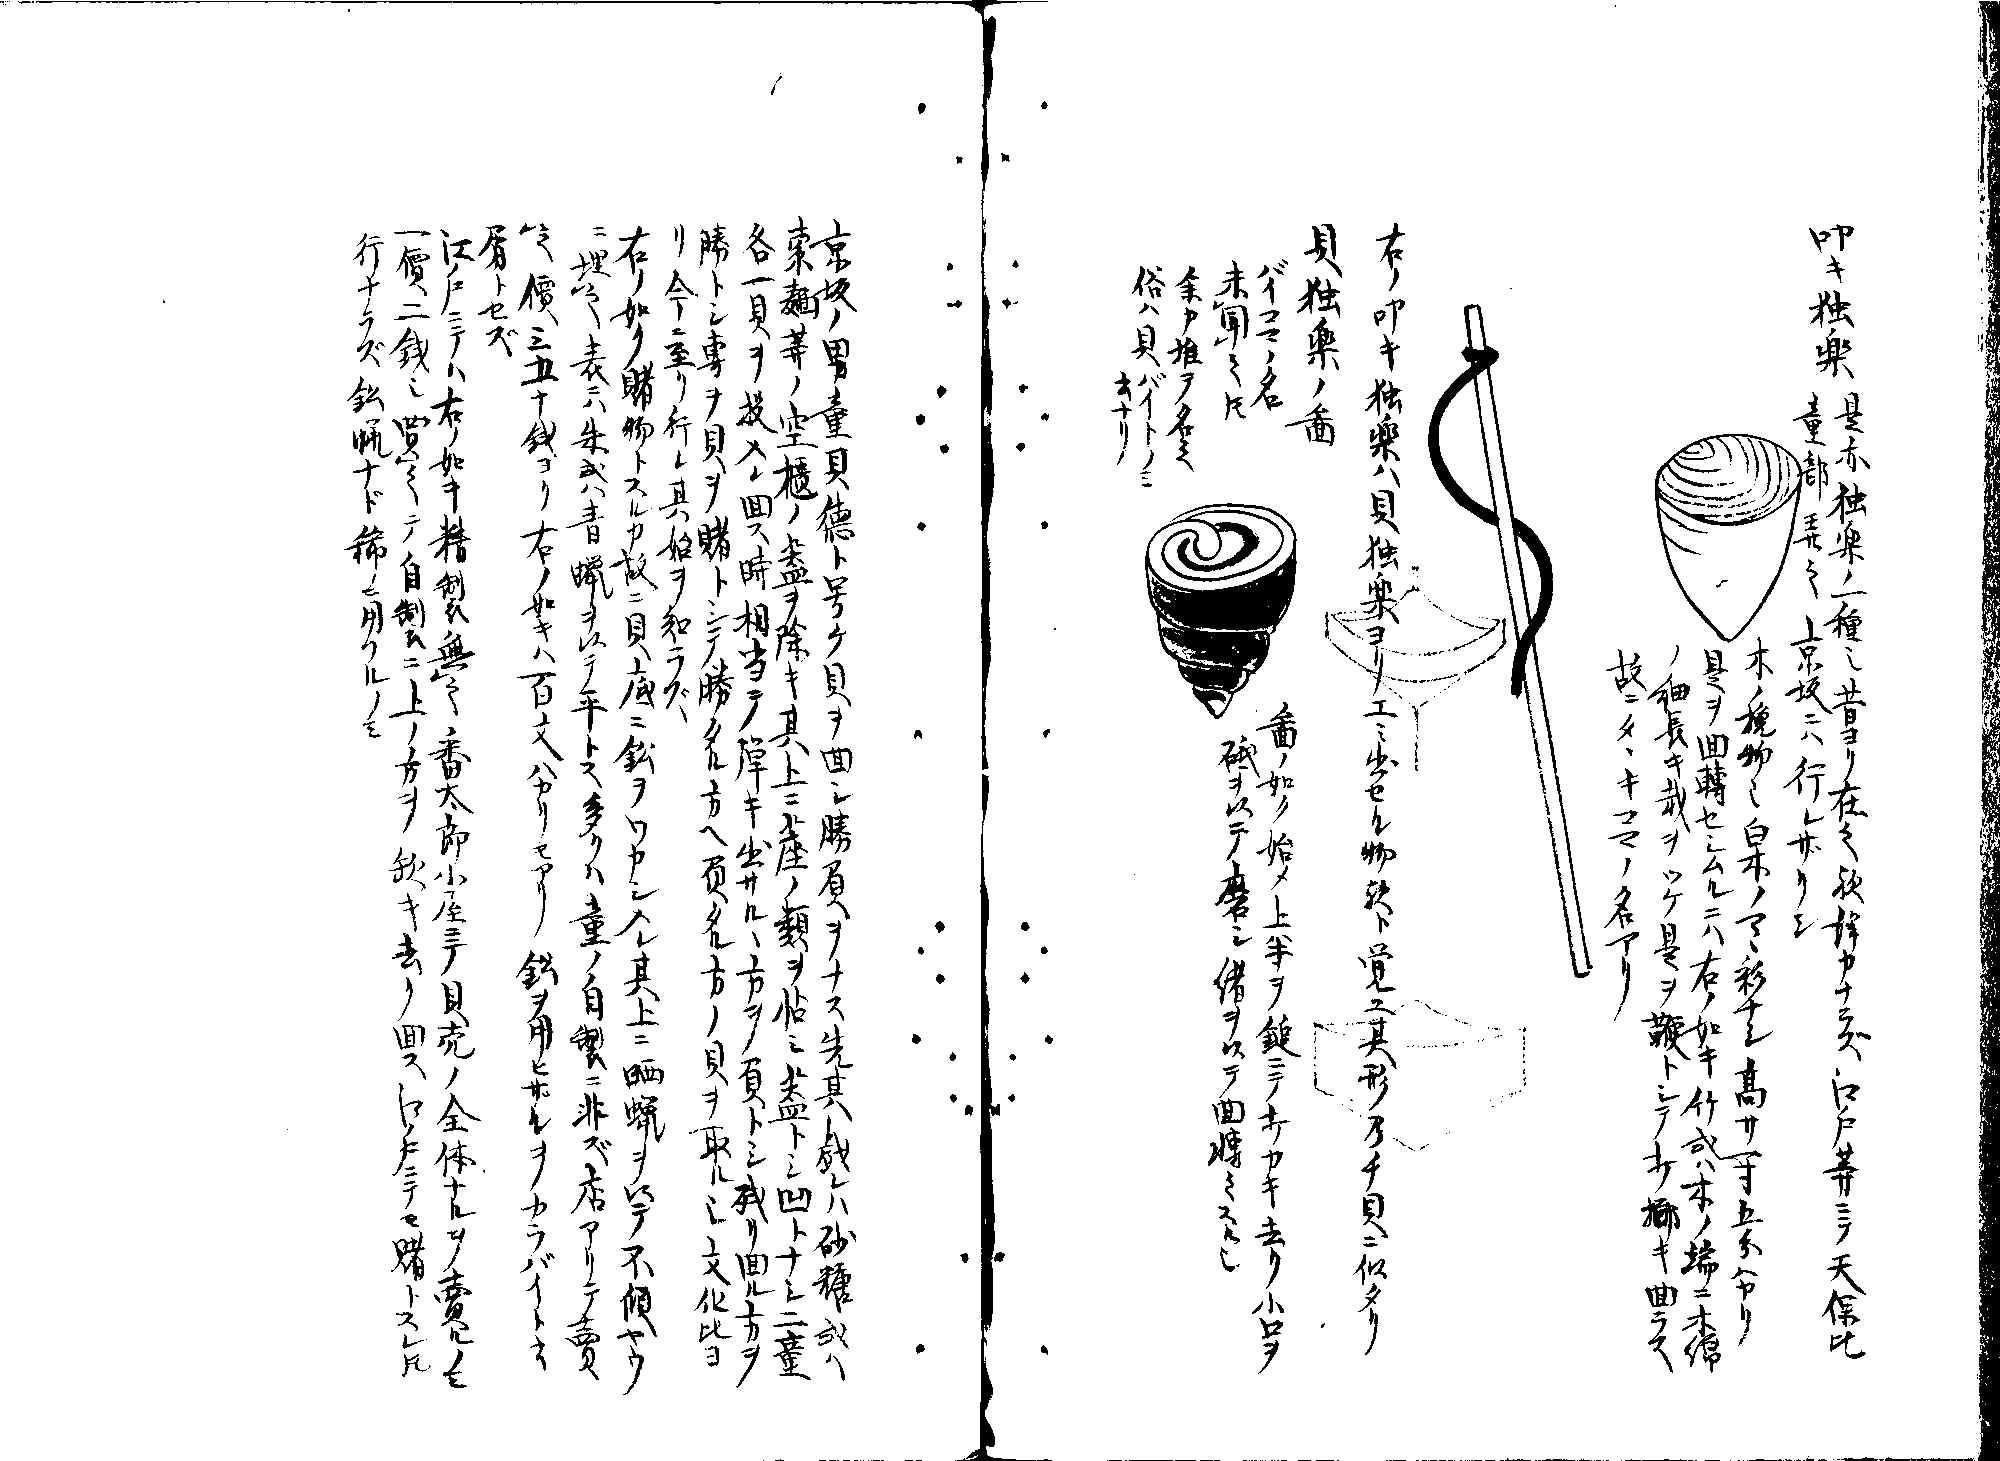 叩キ独楽
是亦独楽ノ一種也昔ヨリ在之歟詳カナラズ江戸等ニテ天保比
童部弄之上京坂ニハ行レザリシ
木ノ挽物也白木ノマヽ彩ナシ高サ一寸五分合リ
是ヲ回轉セシムルニハ右ノ如キ竹或ハ木ノ端ニ木綿
ノ細長キ裁ヲツケ是ヲ鞭トシテ打擲キ回ラス
故ニタヽキコマノ名アリ
右ノ叩キ独楽ハ貝独楽ヨリ工ミ出セル物歟ト覚ユ其形乃チ貝ニ似タリ
貝独楽ノ啚
バイコマノ名
未聞之トモ
余カ推ヲ名之
俗ハ貝バイトノミ
云ナリ
啚ノ如ク始メ上半ヲ鎚ニテ打カキ去リ小口ヲ
砥ヲ以テ磨シ緒ヲ以テ回轉之スル也
京坂ノ男童貝徳ト号ケ貝ヲ回シ勝負ヲナス先其戯レハ砂糖或ハ
索麺等ノ空櫃ノ盖ヲ除キ其上ニ座ノ類ヲ帖シ盖トシ凹トナシ二童
各一貝ヲ投入レ回ス時相当テ弾キ出サルヽ方ヲ負トシ残リ回ル方ヲ
勝トシ専ヲ貝ヲ賭トシテ勝タル方ヘ負タル方ノ貝ヲ取ル也文化比ヨ
リ今ニ至リ行レ其始ヲ知ラズ
右ノ如ク賭物トスルカ故ニ貝底ニ鉛ヲワカシ入レ其上ニ晒蝋ヲ以テ不傾ヤウ
ニ埋之表ニハ朱或ハ青蝋ヲ以テ平トス多クハ童ノ自製ニ非ズ店アリテ賣
之價三五十銭ヨリ右ノ如キハ百文ハカリモアリ鉛ヲ用ヒザルヲカラバイト云
屑トセズ
江戸ニテハ右ノ如キ精製無之番太郎小屋ニテ貝売ノ全体ナルヲノ賣ルノミ
一價二銭也買之テ自制ニ上ノ方ヲ欠キ去リ回ス江戸ニテモ賭トスレトモ
行ナラズ鉛蝋ナド稀ニ用フルノミ